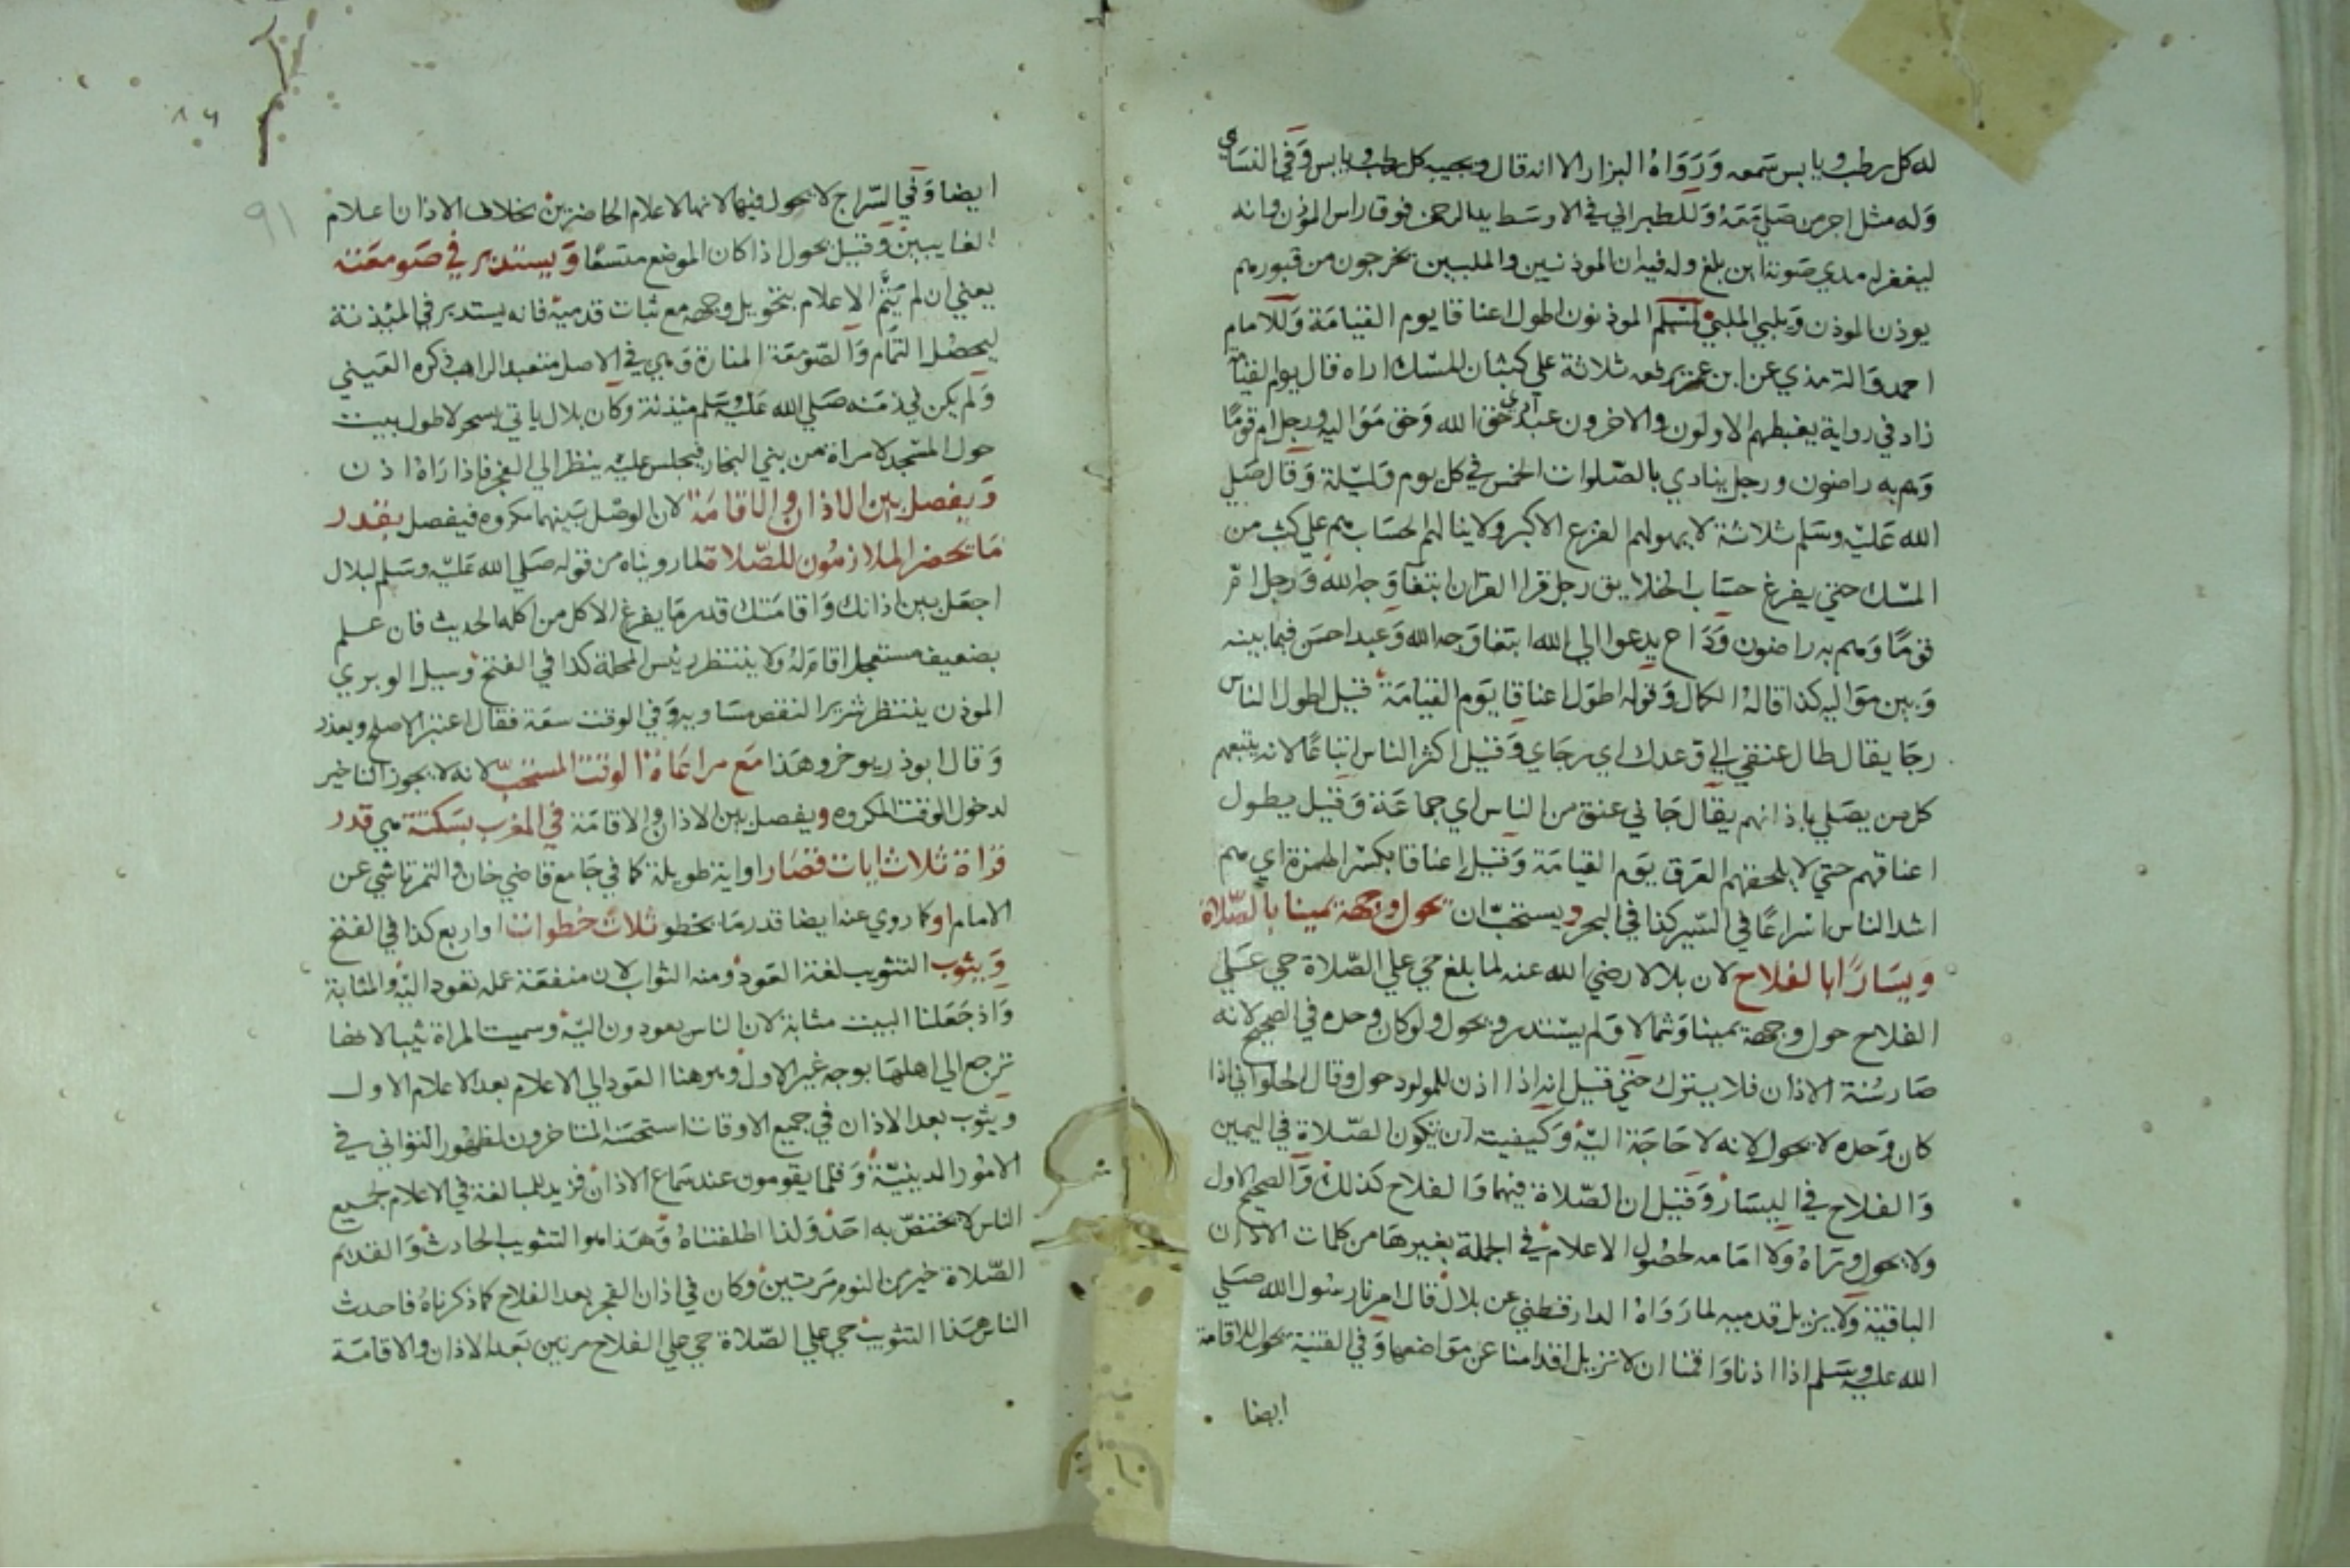 له كل رطب ويابس سمعه ورواه البزار الا انه قال ويجيبه كل رطب ويابس وفي النساي
وله مثل اجر من صلي معه وللطبراني في الاوسط يد الرحمن فوق راس الموذن وانه
ليغفر له مدي صوته اين بلغ وله فيه ان الموذنين والملبين يخرجون من قبورهم
يوذن الموذن ويلبي الملبي ولمسلم الموذنون اطول اعناقا يوم القيامة وللامام
احمد والترمذي عن ابن عمر يرفعه ثلاثة علي كثبان المسك اراه قال يوم القيامة
زاد في رواية يغبطهم الاولون والاخرون عبد ادي حق الله وحق مواليه ورجل ام قوما
وهم به راضون ورجل ينادي بالصلوات الخمس في كل يوم وليلة وقال صلي
الله عليه وسلم ثلاثة لا يهولهم الفزع الاكبر ولا ينالهم الحساب هم علي كثب من
المسك حتي يفرغ حساب الخلايق رجل قرا القران ابتغا وجه الله ورجل ام
قوما وهم به راضون وداع يدعوا الي الله ابتغا وجه الله وعبد احسن فيما بينه
وبين مواليه كذا قاله الكمال وقوله اطول اعناقا يوم القيامة قيل اطول الناس
رجا يقال طال عنقي الي وعدك اي رجاي وقيل اكثر الناس اتباعا لانه يتبعهم
كل من يصلي باذانهم يقال جاني عنق من الناس اي جماعة وقيل يطول
اعناقهم حتي لا يلحقهم العرق يوم القيامة وقيل اعناقا بكسر الهمزة اي هم
اشد الناس اسراعا في السير كذا في البحر ويستحب ان يحول وجهه يمينا بالصلاة
ويسارا بالفلاح لان بلالا رضي الله عنه لما بلغ حي علي الصلاة حي علي
الفلاح حول وجهه يمينا وشمالا ولم يستدر ويحول ولو كان وحده في الصحيح لانه
صار سنة الاذان فلا يترك حتي قيل انه اذا اذن للمولود حول وقال الحلواني اذا
كان وحده لا يحول لانه لا حاجة اليه وكيفيته ان يكون الصلاة في اليمين
والفلاح في اليسار وقيل ان الصلاة فيهما والفلاح كذلك والصحيح الاول
ولا يحول وراه ولا امامه لحصول الاعلام في الجملة بغيرها من كلمات الاذان
الباقية ولا يزيل قدميه لما رواه الدارقطني عن بلال قال امرنا رسول الله صلي
الله عليه وسلم اذا اذنا واقمنا ان لا نزيل اقدامنا عن مواضعها وفي القنية يحول للاقامة
ايضا
٨٩
٩١
ايضا وفي السراج لا يحول فيها لانها لاعلام الحاضرين بخلاف الاذان اعلام
الغايبين وقيل يحول اذا كان الموضع متسعا ويستدير في صومعته
يعني ان لم يتم الاعلام بتحويل وجهه مع ثبات قدميه فانه يستدير في المئذنة
ليحصل التمام والصومعة المنارة وهي في الاصل متعبد الراهب ذكره العيني
ولم يكن في زمنه صلي الله عليه وسلم مئذنة وكان بلال ياتي بسحر لاطول بيت
حول المسجد لامراة من بني النجار فيجلس عليه ينظر الي الفجر فاذا راه اذن
ويفصل بين الاذان والاقامة لان الوصل بينهما مكروه فيفصل بقدر
ما يحضر الملازمون للصلاة لما رويناه من قوله صلي الله عليه وسلم لبلال
اجعل بين اذانك واقامتك قدر ما يفرغ الاكل من اكله الحديث فان علم
بضعيف مستعجل اقام له ولا ينتظر رئيس المحلة كذا في الفتح وسيل الوبري
الموذن ينتظر شريرا لنقص مساويه وفي الوقت سعة فقال اعتبر الاصلح ويعذر
وقال ابوذر يوخر وهذا مع مراعاة الوقت المستحب لانه لا يجوز التاخير
لدخول الوقت المكروه ويفصل بين الاذان والاقامة في المغرب بسكتة هي قدر
قراة ثلاث ايات قصار او اية طويلة كما في جامع قاضي خان والتمرتاشي عن
الامام او كما روي عنه ايضا قدر ما يخطو ثلاث خطوات او اربع كذا في الفتح
ويثوب التثويب لغة العود ومنه الثواب لان منفعة عمله تعود اليه والمثابة
واذ جعلنا البيت مثابة لان الناس يعودون اليه وسميت المراة ثيبا لانها
ترجع الي اهلها بوجه غير الاول وهو هنا العود الي الاعلام بعد الاعلام الاول
ويثوب بعد الاذان في جميع الاوقات استحسنه المتاخرون لظهور التواني في
الامور الدينية وقلما يقومون عند سماع الاذان فزيد للمبالغة في الاعلام لجميع
الناس لا يختص به احد ولذا اطلقناه وهذا هو التثويب الحادث والقديم
الصلاة خير من النوم مرتين وكان في اذان الفجر بعد الفلاح كما ذكرناه فاحدث
الناس هذا التثويب حي علي الصلاة حي علي الفلاح مرتين بعد الاذان والاقامة